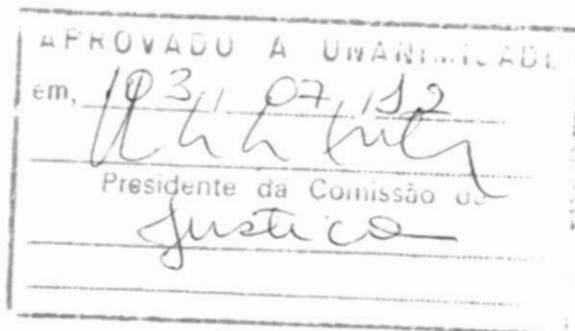 APROVADO A UNANIMIDADE
em, 03 / 07 / 12
Presidente da Comissão de
Justiça